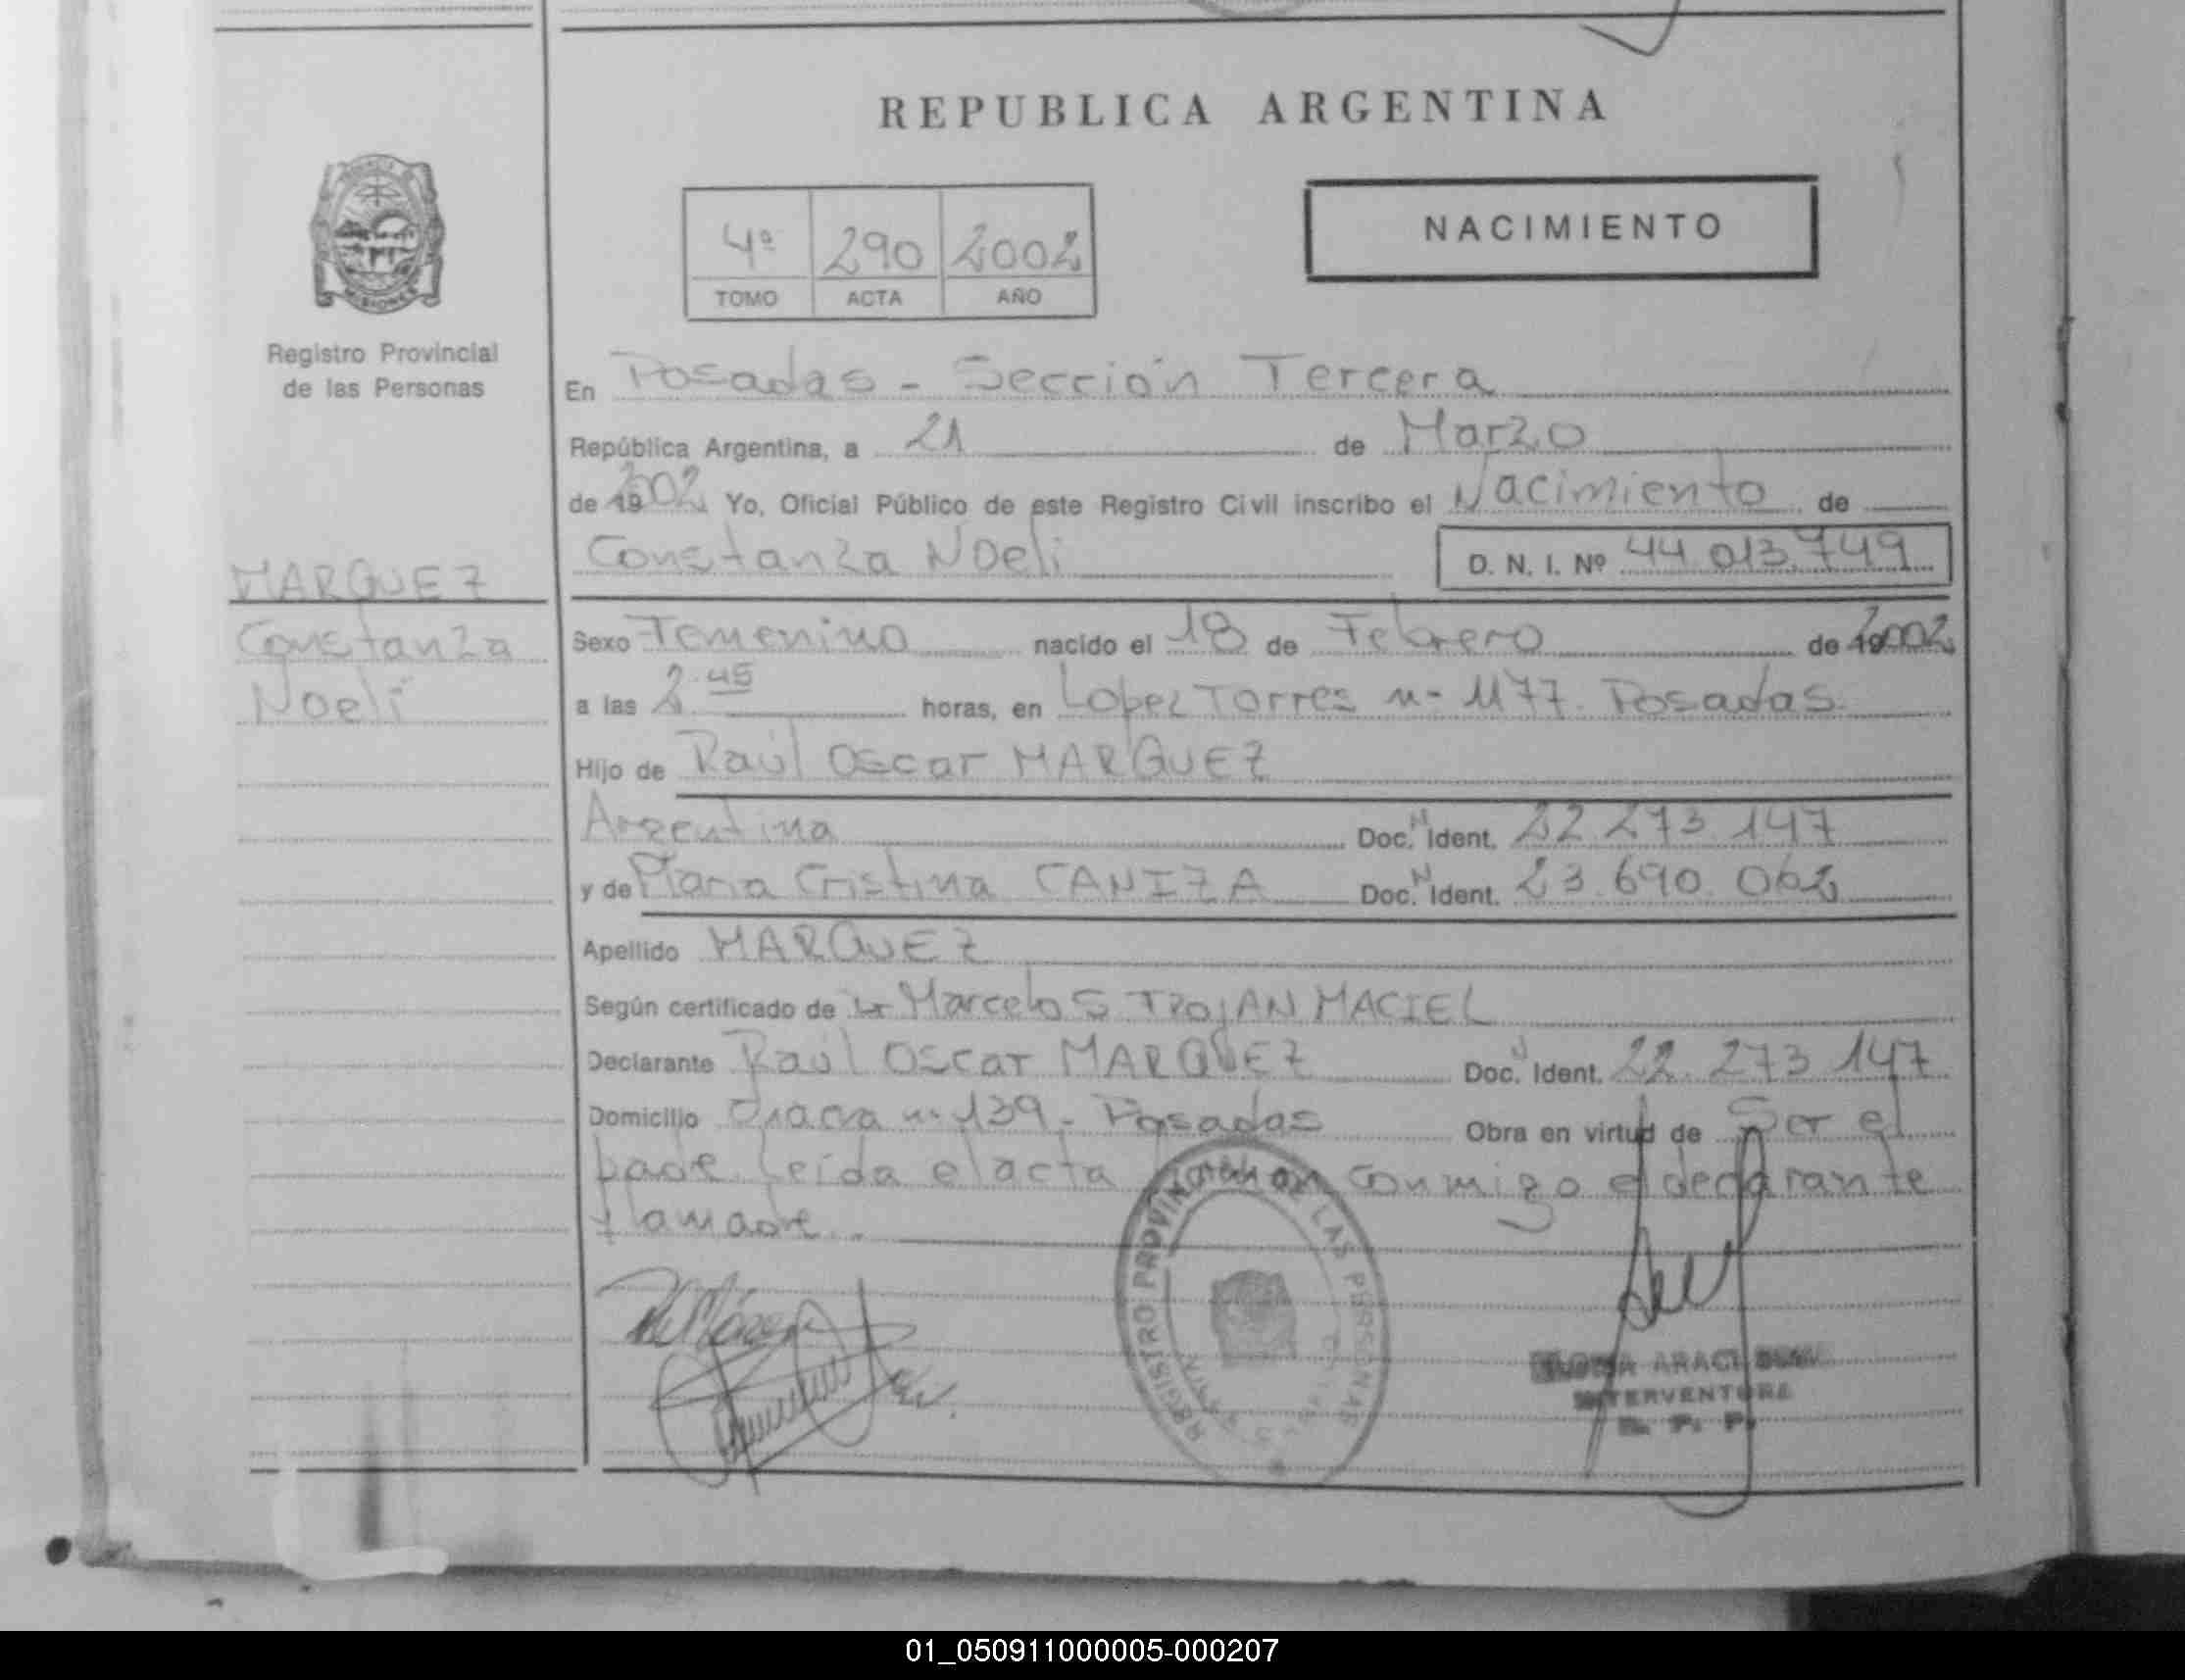 REPUBLICA ARGENTINA
NACIMIENTO
4º 290 2002
TOMO ACTA AÑO
MISIONES
Registro Provincial
de las Personas
En Posadas - Sección Tercera
República Argentina, a 21 de Marzo
de 19 2002 Yo, Oficial Público de este Registro Civil inscribo el Nacimiento de
Constanza Noeli D. N. I. Nº 44.013.749
MARQUEZ
Constanza
Noeli
Sexo Femenino nacido el 18 de Febrero de 19 2002
a las 2.45 horas, en Lopez Torres nº 1177. Posadas
Hijo de Raúl Oscar MARQUEZ
Argentina Doc. N Ident. 22.273.147
y de Maria Cristina CANIZA Doc. N Ident. 23.690.062
Apellido MARQUEZ
Según certificado de Dr Marcelo S TROJAN MACIEL
Declarante Raúl Oscar MARQUEZ Doc. N Ident. 22.273 147
Domicilio nº 139 - Posadas Obra en virtud de Ser el
padre Leida el acta conmigo el declarante
y la madre.
REGISTRO PROVINCIAL DE LAS PERSONAS
ARACI
INTERVENTORA
R. P. P.
01_050911000005-000207